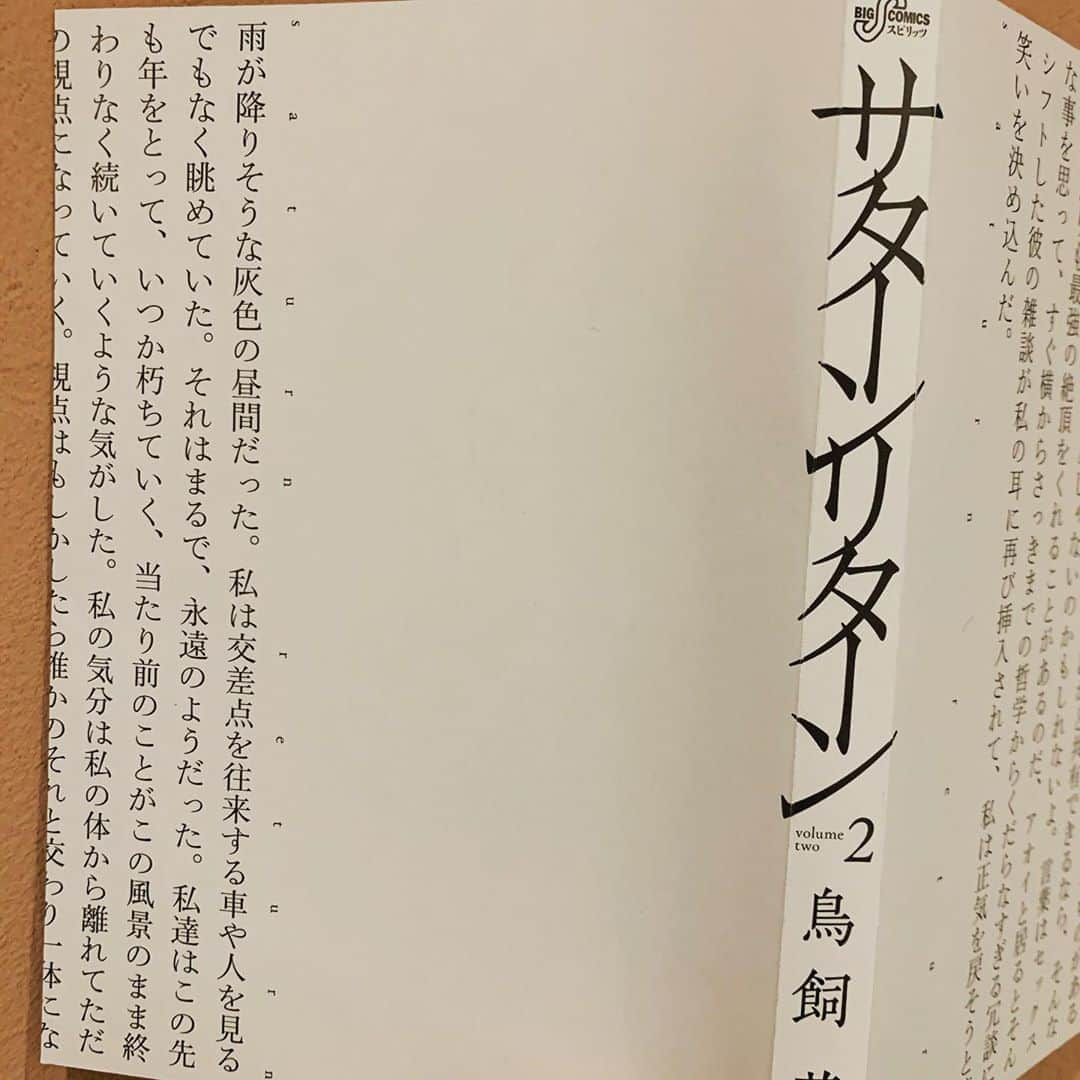 共有できるなら、そんな
じゃないのかもしれないよ。言葉はセックス
最強の絶頂をくれることがあるのだ、アオイと居るとそん
な事を思って、すぐ横からさっきまでの哲学からくだらなすぎる冗談に
シフトした彼の雑談が私の耳に再び挿入されて、私は正気を戻そうと
笑いを決め込んだ。
BIG S COMICS
スピリッツ
サターンリターン
2
volume
two
鳥飼
saturn return
雨が降りそうな灰色の昼間だった。私は交差点を往来する車や人を見る
でもなく眺めていた。それはまるで、永遠のようだった。私達はこの先
も年をとって、いつか朽ちていく、当たり前のことがこの風景のまま終
わりなく続いていくような気がした。私の気分は私の体から離れてただ
の視点になっていく。視点はもしかしたら誰かのそれと交わり一体にな